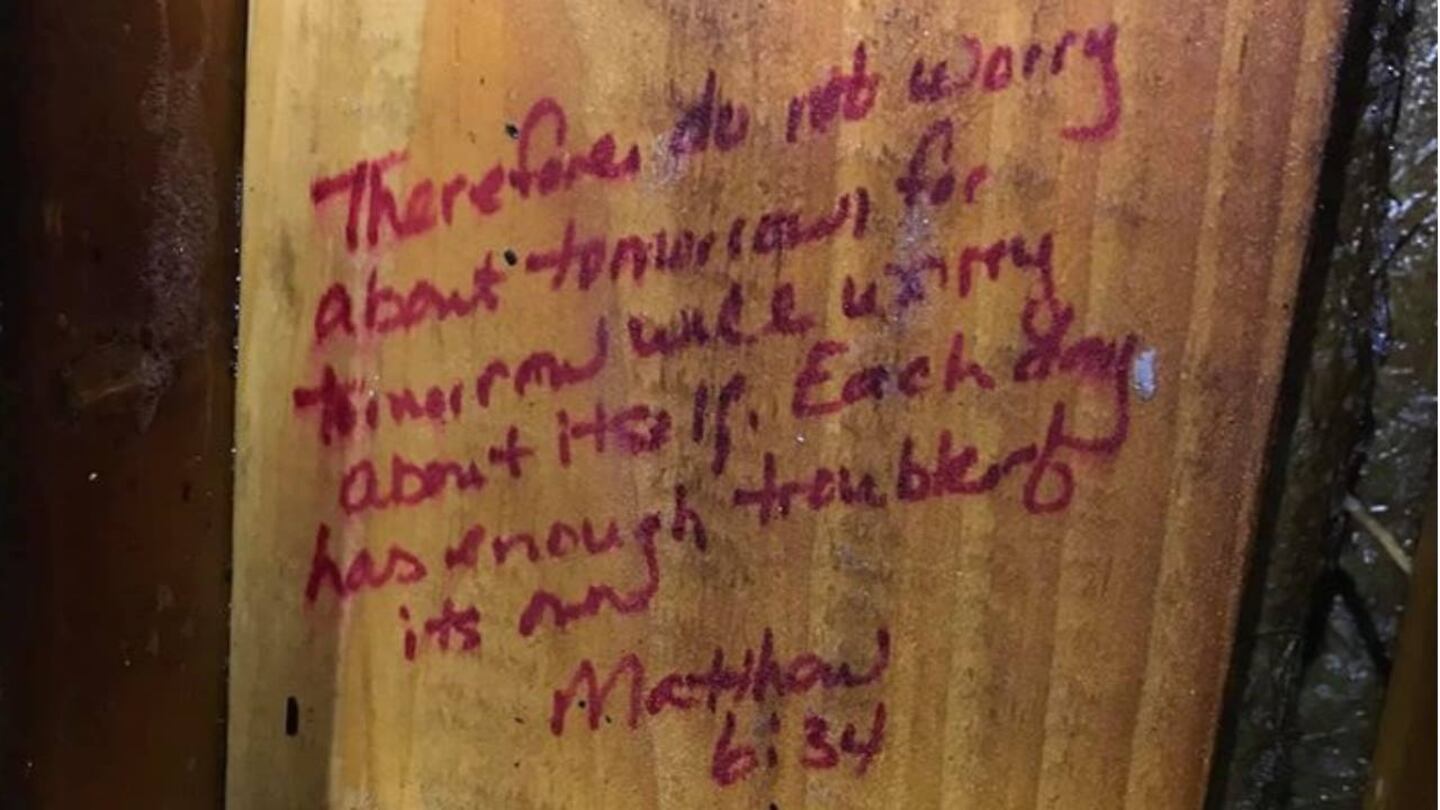 Therefore do not worry
about tomorrow for
tomorrow will worry
about itself. Each day
has enough trouble of
its own
Matthew
6:34